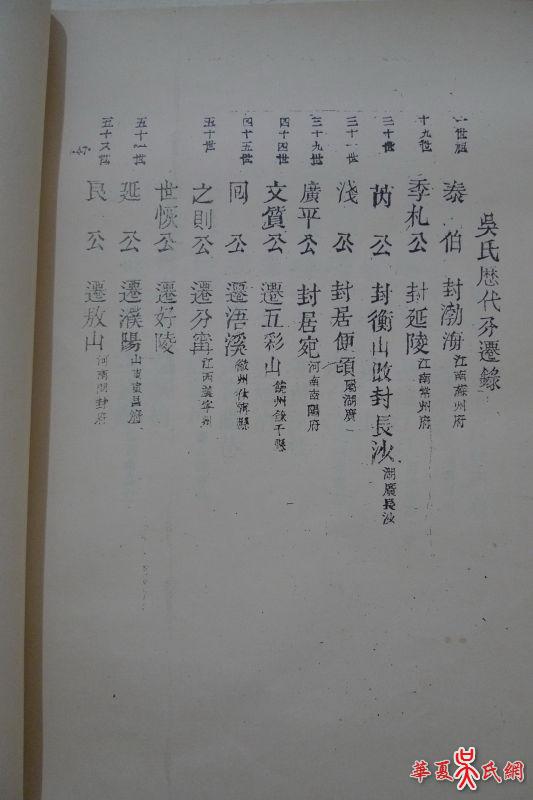 吳氏歷代分遷錄
一世祖 泰伯 封渤海 江南蘇州府
十九世 季札公 封延陵 江南常州府
二十世 芮公 封衡山改封長沙 湖廣長沙
三十一世 淺公 封居便頃 屬湖廣
三十九世 廣平公 封居宛 河南南陽府
四十四世 文質公 遷五彩山 饒州餘干縣
四十五世 同公 遷浯溪 徽州休寧縣
五十世 之則公 遷分甯 江西義寧州
世恢公 遷好陵
五十一世 延公 遷濮陽 山東東昌府
世 良公 遷敖山 河南開封府
華夏吳氏網